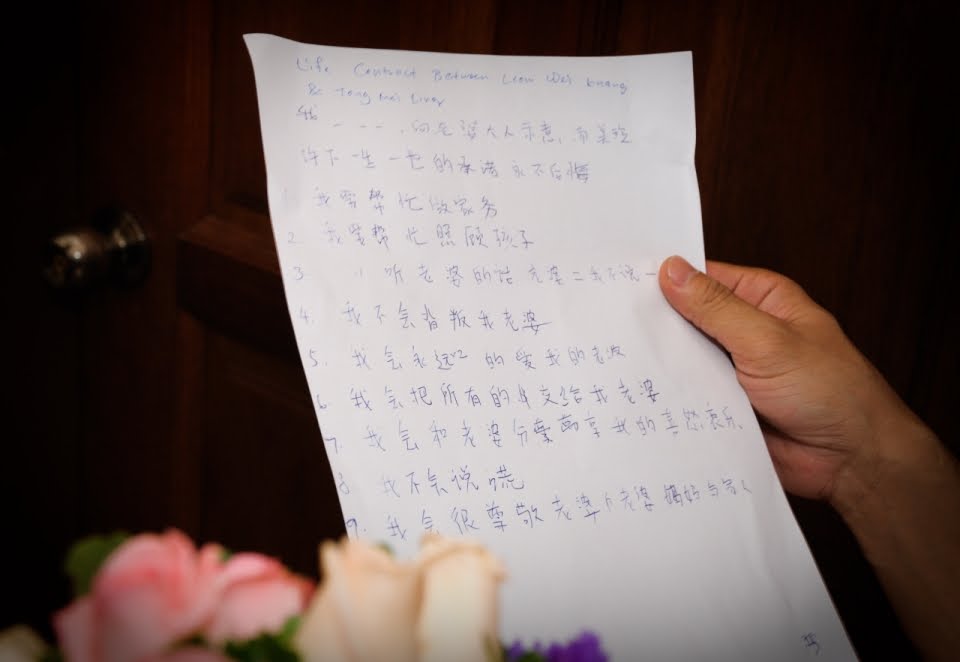 Life Contract Between Liew Wei
& Tong Mei
我 - - - - , 向在 大人示意, 向美玲
许下一生一世的承诺永不后悔
1 我要帮忙做家务
2. 我要帮忙照顾孩子
3. 〃 听老婆的话 老婆 二 我不说一
4. 我不会背叛我老婆
5. 我会永远 的爱我的老婆
6 我会把所有的 交给我老婆
7. 我会和老婆分 享我的喜怒哀乐、
8 我不会说谎
9. 我会很尊敬老婆 老婆